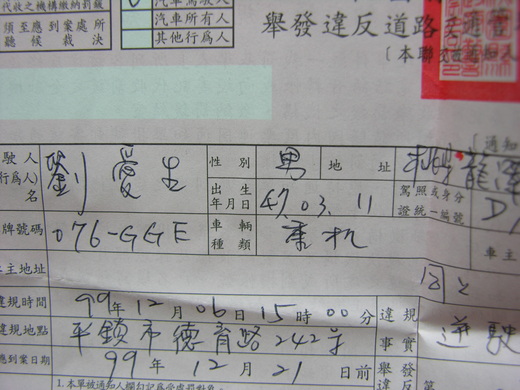 代收之機構繳納罰鍰
須至應到案處所
聽候裁決
汽車駕駛人
汽車所有人
其他行為人
舉發違反道路交通
〔本聯交
〔通知
駛人
行為人)
名
劉愛生
性別
男
地址
出生
年月日
47.03.11
駕照或身分
證統一編號
D
牌號碼
076-GGE
車輛
種類
車主
主地址
違規時間
99年12月06日15時00分
違規
事實
違規地點
平鎮市德育路242号
應到案日期
99年12月21日前
舉發
違反
第